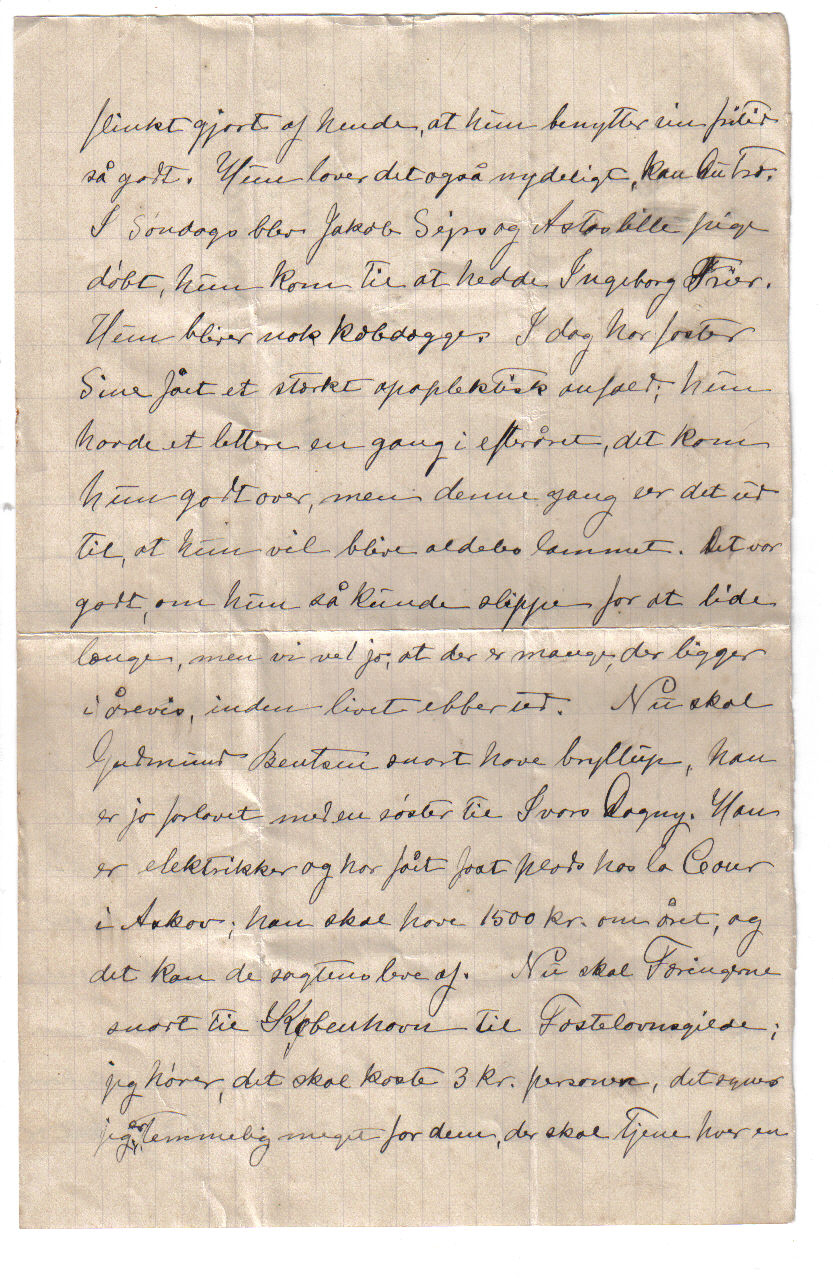 flinkt gjort af hende, at hun benytter sin fritid
så godt. Hun laver det også nydeligt, kan du tro.
I Søndags blev Jakob Sejrs og Astas lille pige
døbt, hun kom til at hedde Ingeborg Frier.
Hun bliver nok kæledægge. I dag har faster
Sine fået et stærkt apoplektisk anfald; hun
havde et lettere en gang i efteråret, det kom
hun godt over, men denne gang ser det ud
til, at hun vil blive aldeles lammet. Det var
godt, om hun så kunde slippe for at lide
længe, men vi ved jo, at der er mange, der ligger
i årevis, inden livet ebber ud. Nu skal
Gudmund Bentsen snart have bryllup, han
er jo forlovet med en søster til Ivars Dagny. Han
er elektrikker og har fået fast plads hos la Cour
i Askov; han skal have 1500 kr. om året, og
det kan de sagtens leve af. Nu skal Færingerne
snart til København til Fastelavnsgilde;
jeg hører, det skal koste 3 kr. personen, det synes
jeg er temmelig meget for dem, der skal tjene hver en